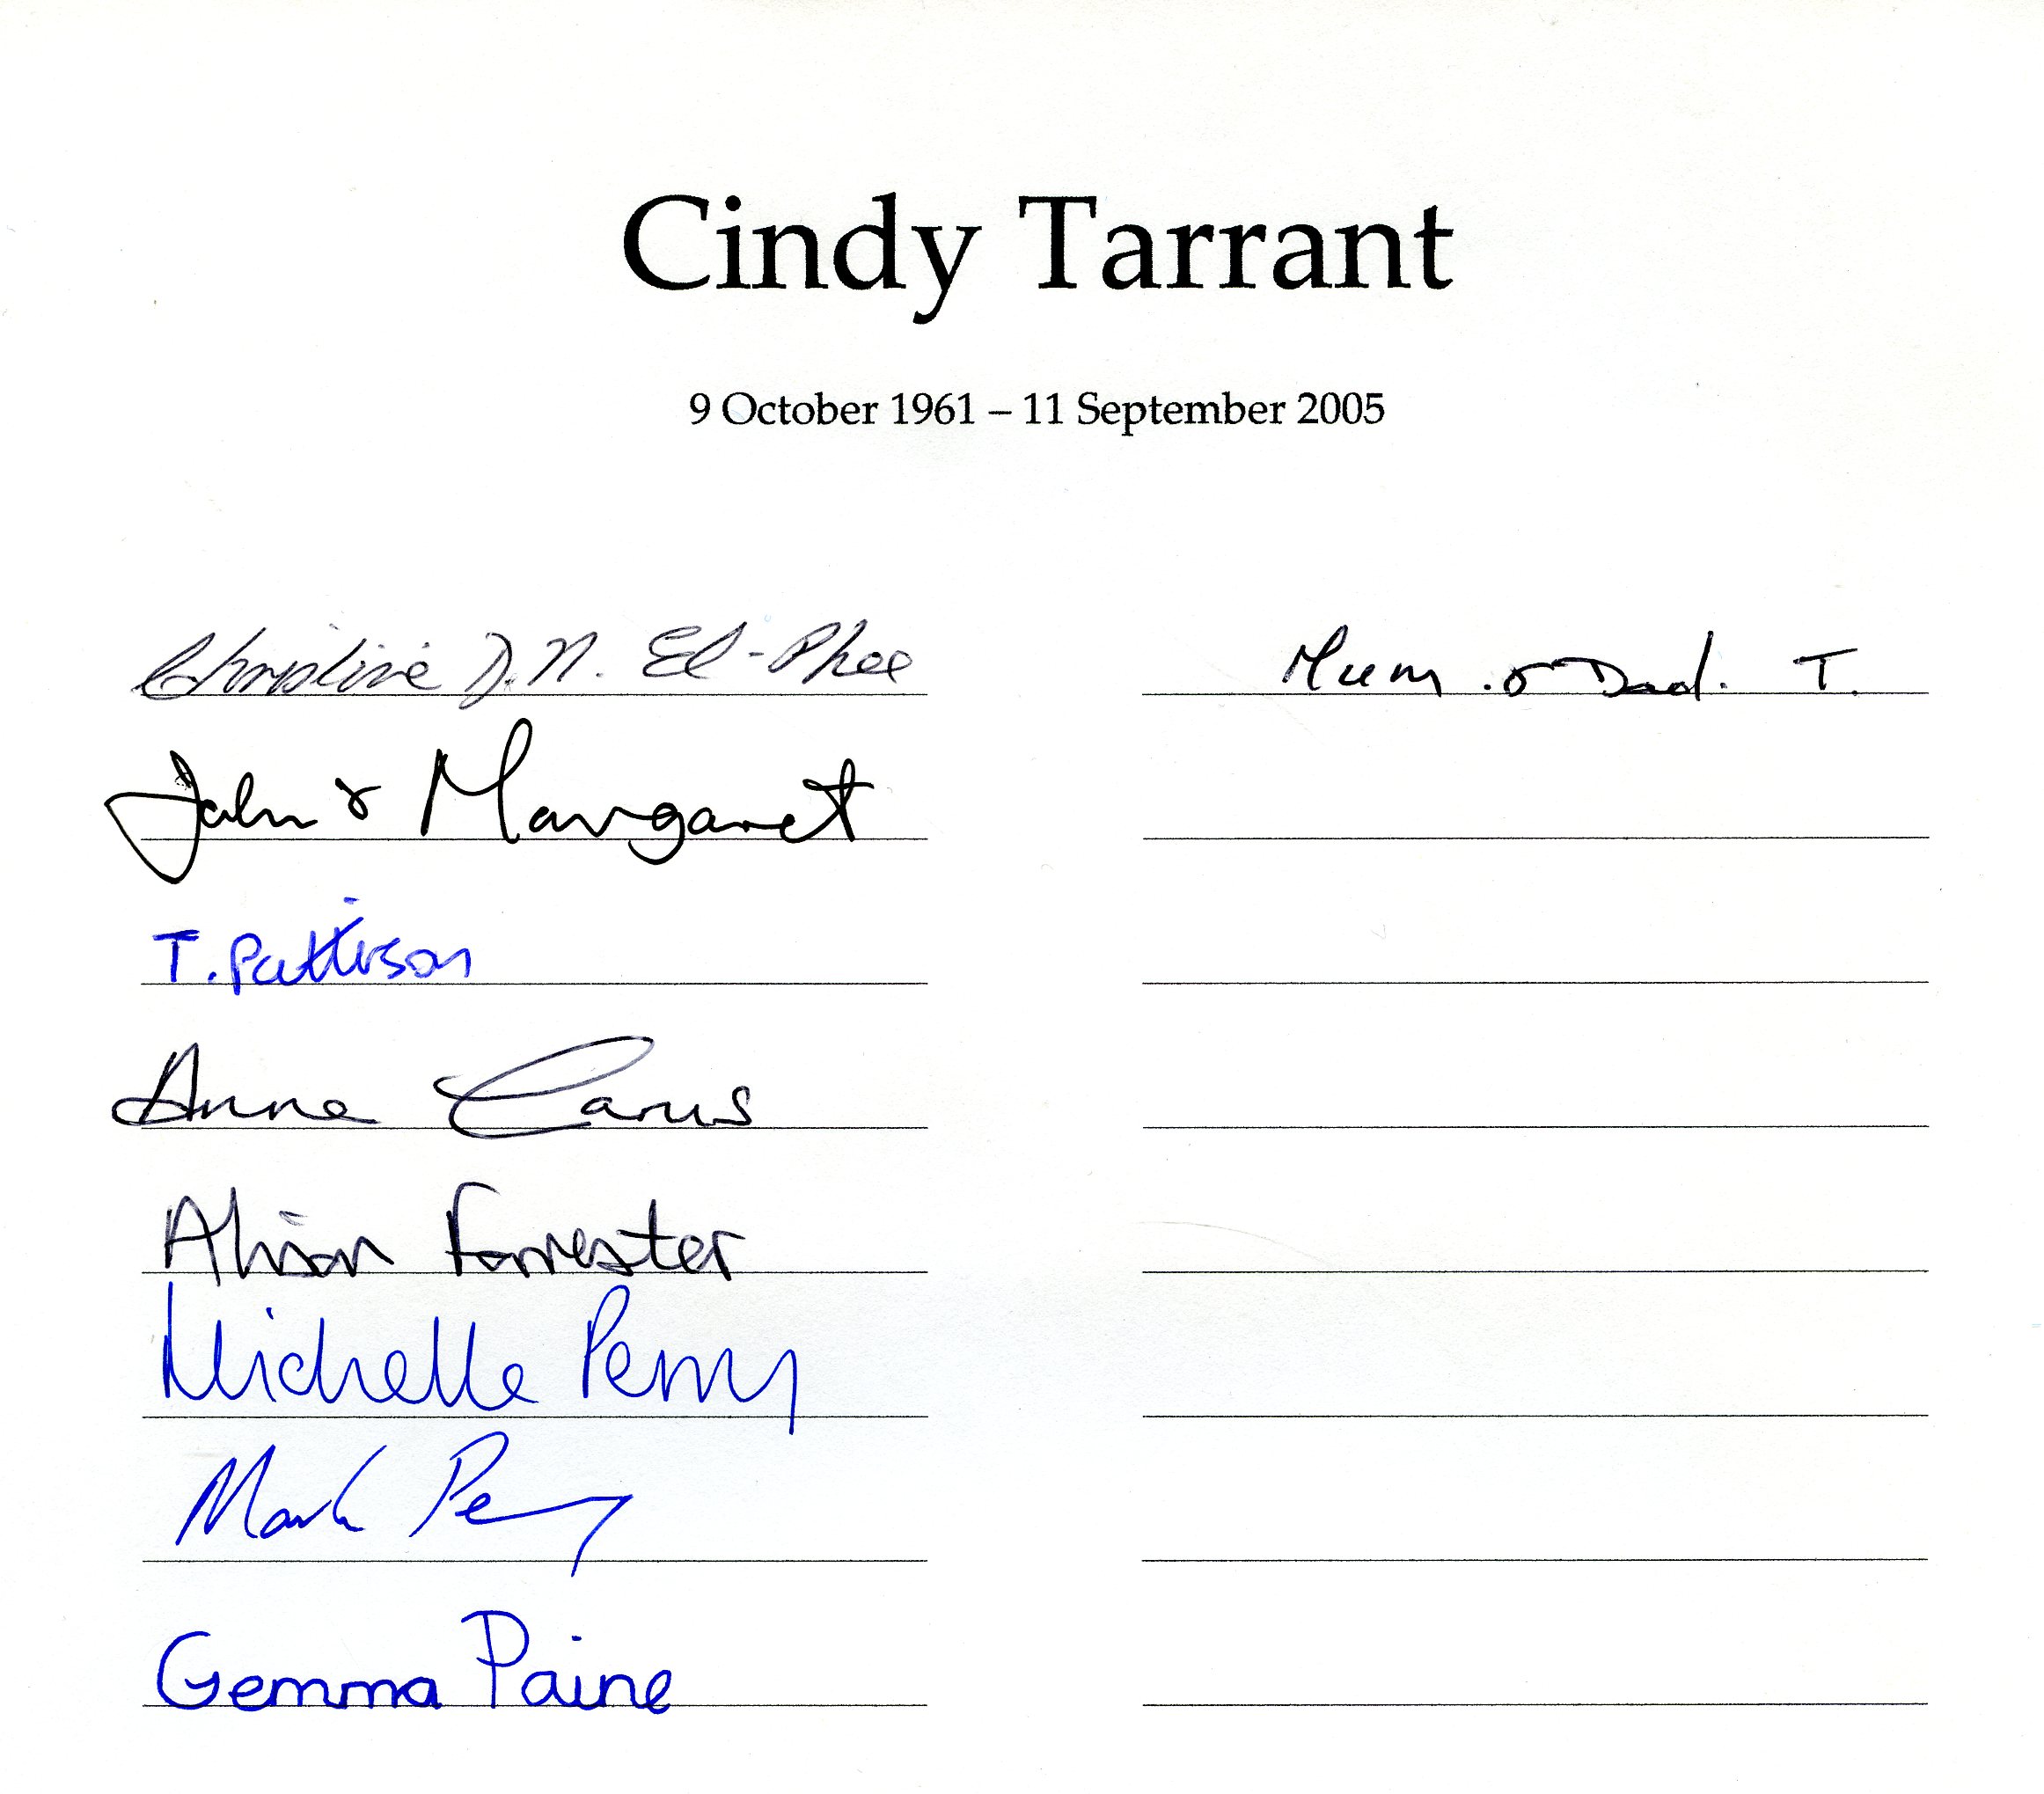 Cindy Tarrant
9 October 1961 – 11 September 2005
Christine D.N. El-Phee
John & Margaret
T. Pattison
Anne Carus
Alison Forrester
Michelle Perry
Mark Perry
Gemma Paine
Mum & Dad. T.